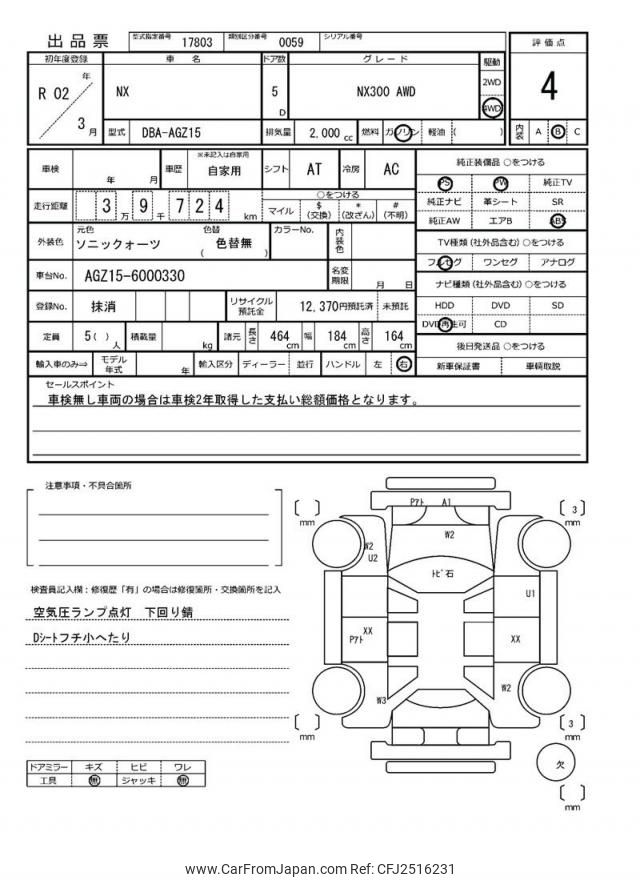 出品票 型式指定番号 17803 類別区分番号 0059 シリアル番号
初年度登録 車名 ドア数 グレード 駆動 評価点
R 02 年 3 月 NX 5 D NX300 AWD 2WD 4WD 4
型式 DBA-AGZ15 排気量 2,000 cc 燃料 ガソリン 軽油 ( ) 内装 A B C
車検 年 月 車歴 ※未記入は自家用 自家用 シフト AT 冷房 AC
走行距離 3 万 9 千 7 2 4 km ○をつける マイル $ (交換) * (改ざん) # (不明)
外装色 元色 ソニックォーツ 色替 ( 色替無 ) カラーNo. 内装色
車台No. AGZ15-6000330 名変期限 月 日
登録No. 抹消 リサイクル預託金 12,370円預託済 未預託
定員 5 ( ) 人 積載量 kg 諸元 長さ 464 cm 幅 184 cm 高さ 164 cm
輸入車のみ⇒ モデル年式 年 輸入区分 ディーラー 並行 ハンドル 左 右
純正装備品 ○をつける
PS PW 純正TV
純正ナビ 革シート SR
純正AW エアB ABS
TV種類 (社外品含む) ○をつける
フルセグ ワンセグ アナログ
ナビ種類 (社外品含む) ○をつける
HDD DVD SD
DVD再生可 CD
後日発送品 ○をつける
新車保証書 車輌取説
セールスポイント
車検無し車両の場合は車検2年取得した支払い総額価格となります。
注意事項・不具合箇所
検査員記入欄：修復歴「有」の場合は修復箇所・交換箇所を記入
空気圧ランプ点灯 下回り錆
Dシートフチ小へたり
ドアミラー キズ ヒビ ワレ
工具 無 ジャッキ 無
Pアト A1
[ ] mm
[ 3 ] mm
W2
W2
U2
トビ石
U1
XX
Pアト
XX
W3
W2
[ ] mm
[ 3 ] mm
欠
[ ] mm
www.CarFromJapan.com Ref: CFJ2516231